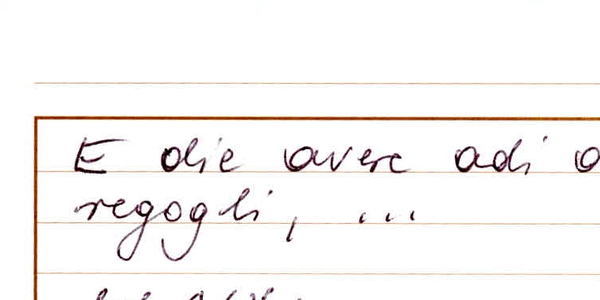 E die avere adi
regogli, ...